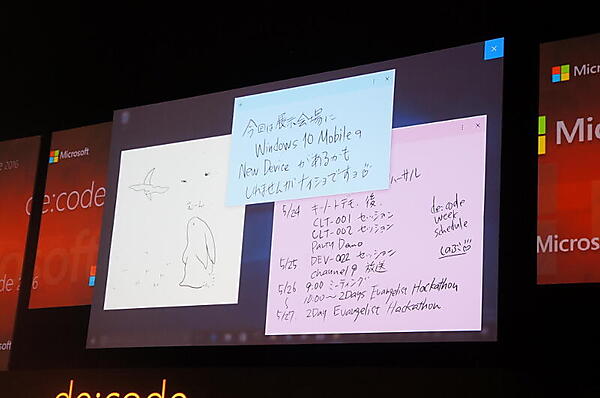 2016
Microsoft
de:code
2016
soft
今回は展示会場に
Windows 10 Mobileの
New Device があるかも
しれませんがナイショですヨ
むーん
ーサル
5/24 キーノートデモ、後、
CLT-001 セッション
CLT-002 セッション
Party Demo
5/25 DEV-002 セッション
Channel 9 放送
5/26 9:00 ミーティング
10:00～2Days Evangelist Hackathon
5/27 2Day Evangelist Hackathon
de:code
week
schedule
Micr
Mi
Micros
de:code